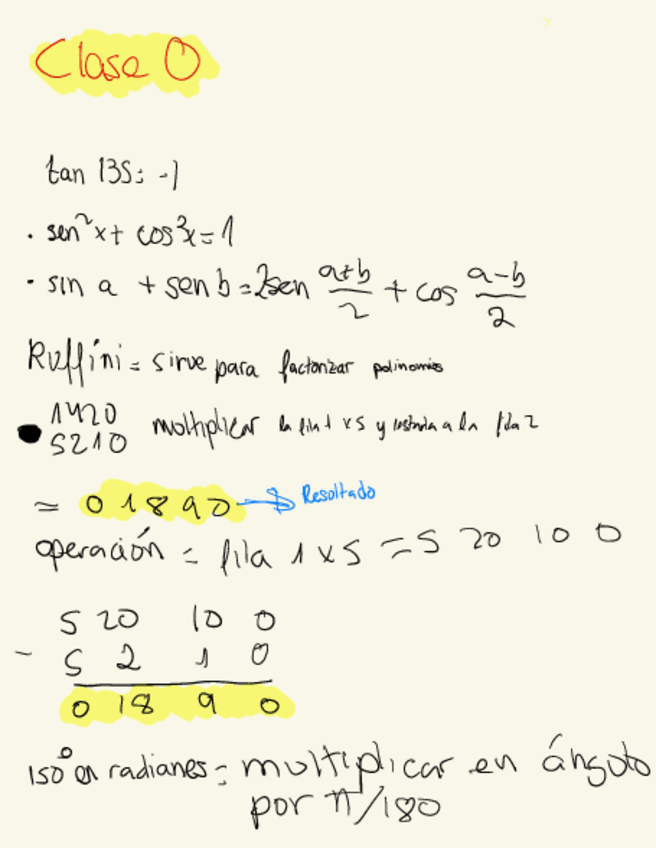 Clase 0
tan 135: -1
· sen²x + cos²x = 1
· sin a + sen b = 2sen a+b/2 + cos a-b/2
Ruffini = sirve para factorizar polinomios
1420
5210 multiplicar la fila 1 x 5 y restarla a la fila 2
= 01890 → Resultado
operación = fila 1 x 5 = 5 20 10 0
5 20 10 0
- 5 2 1 0
0 18 9 0
150° en radianes = multiplicar en ángulo
por π/180